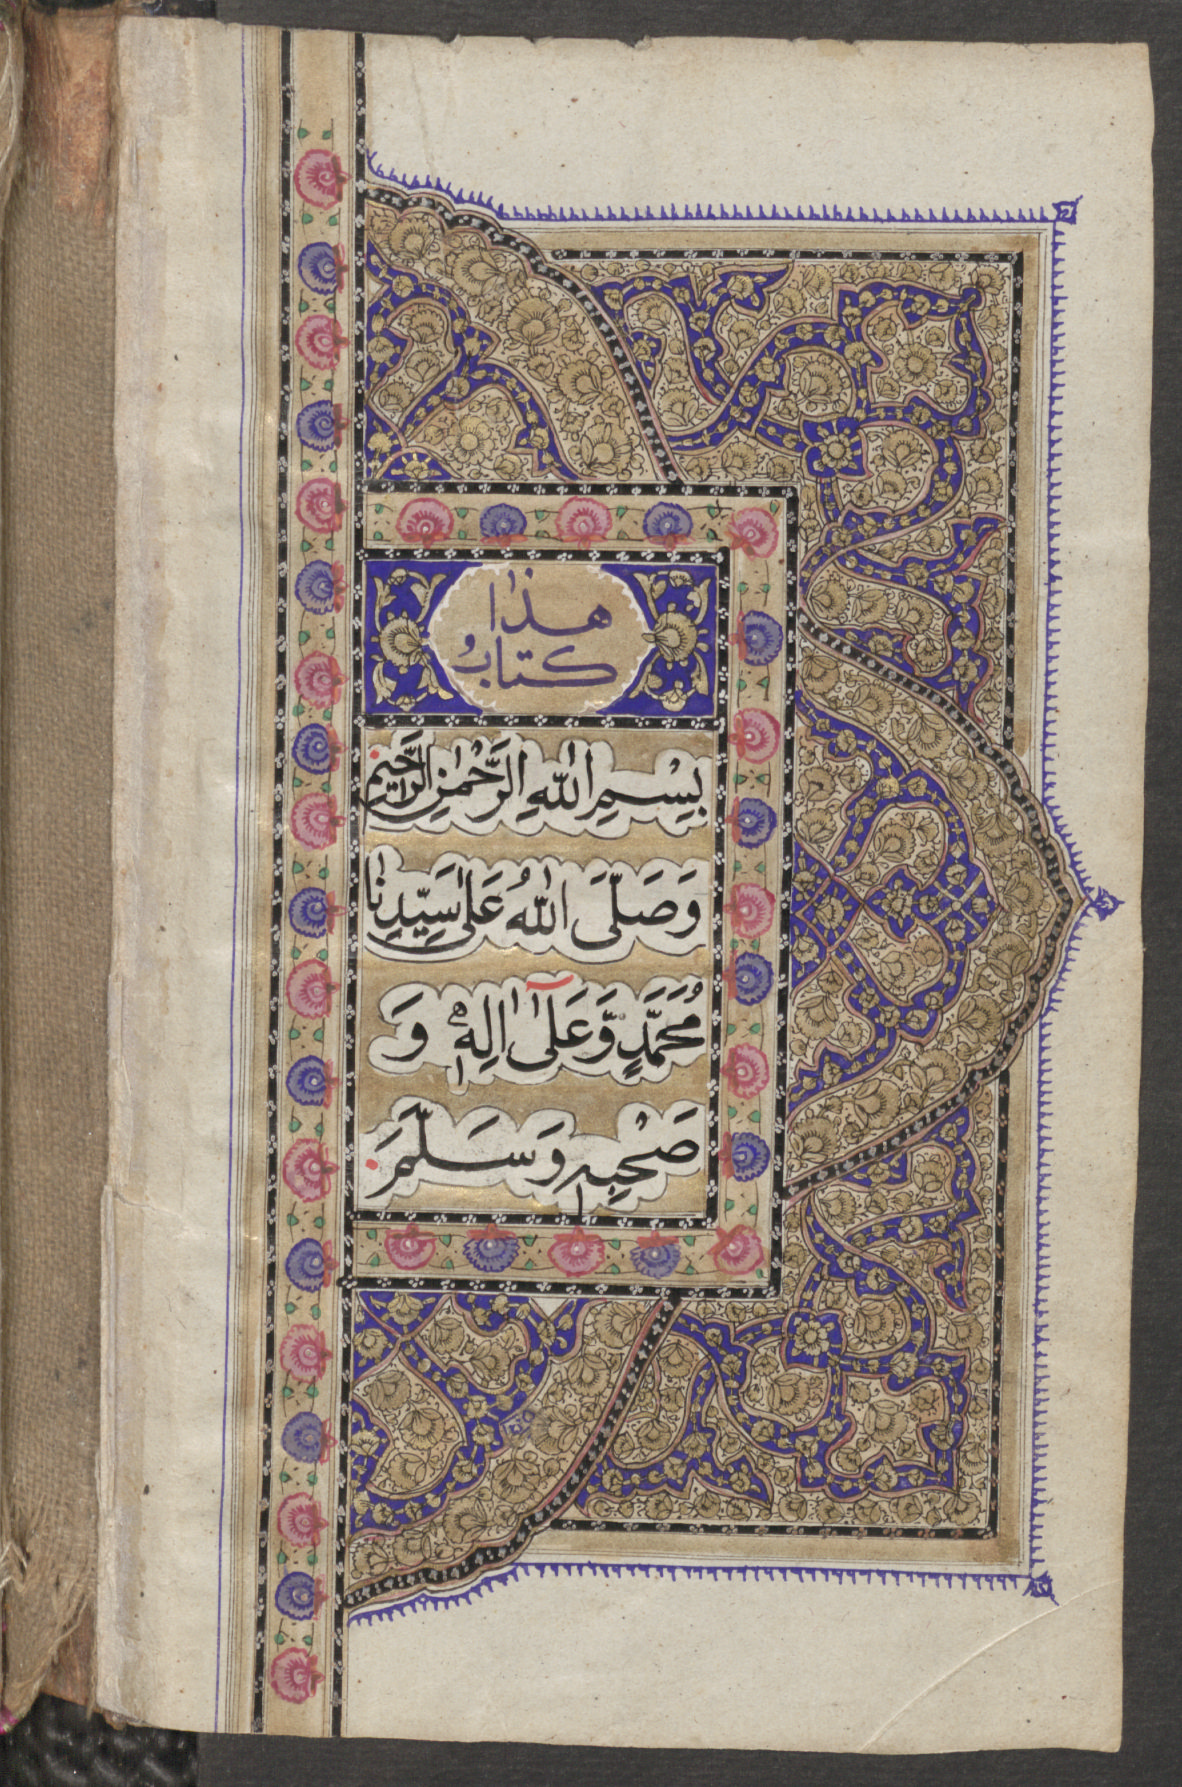 هذا
كتاب
بِسْمِ اللّٰهِ الرَّحْمٰنِ الرَّحِيْمِ
وَصَلَّى اللّٰهُ عَلٰى سَيِّدِنَا
مُحَمَّدٍ وَّعَلٰٓى اٰلِهٖ وَ
صَحْبِهٖ وَسَلَّمَ